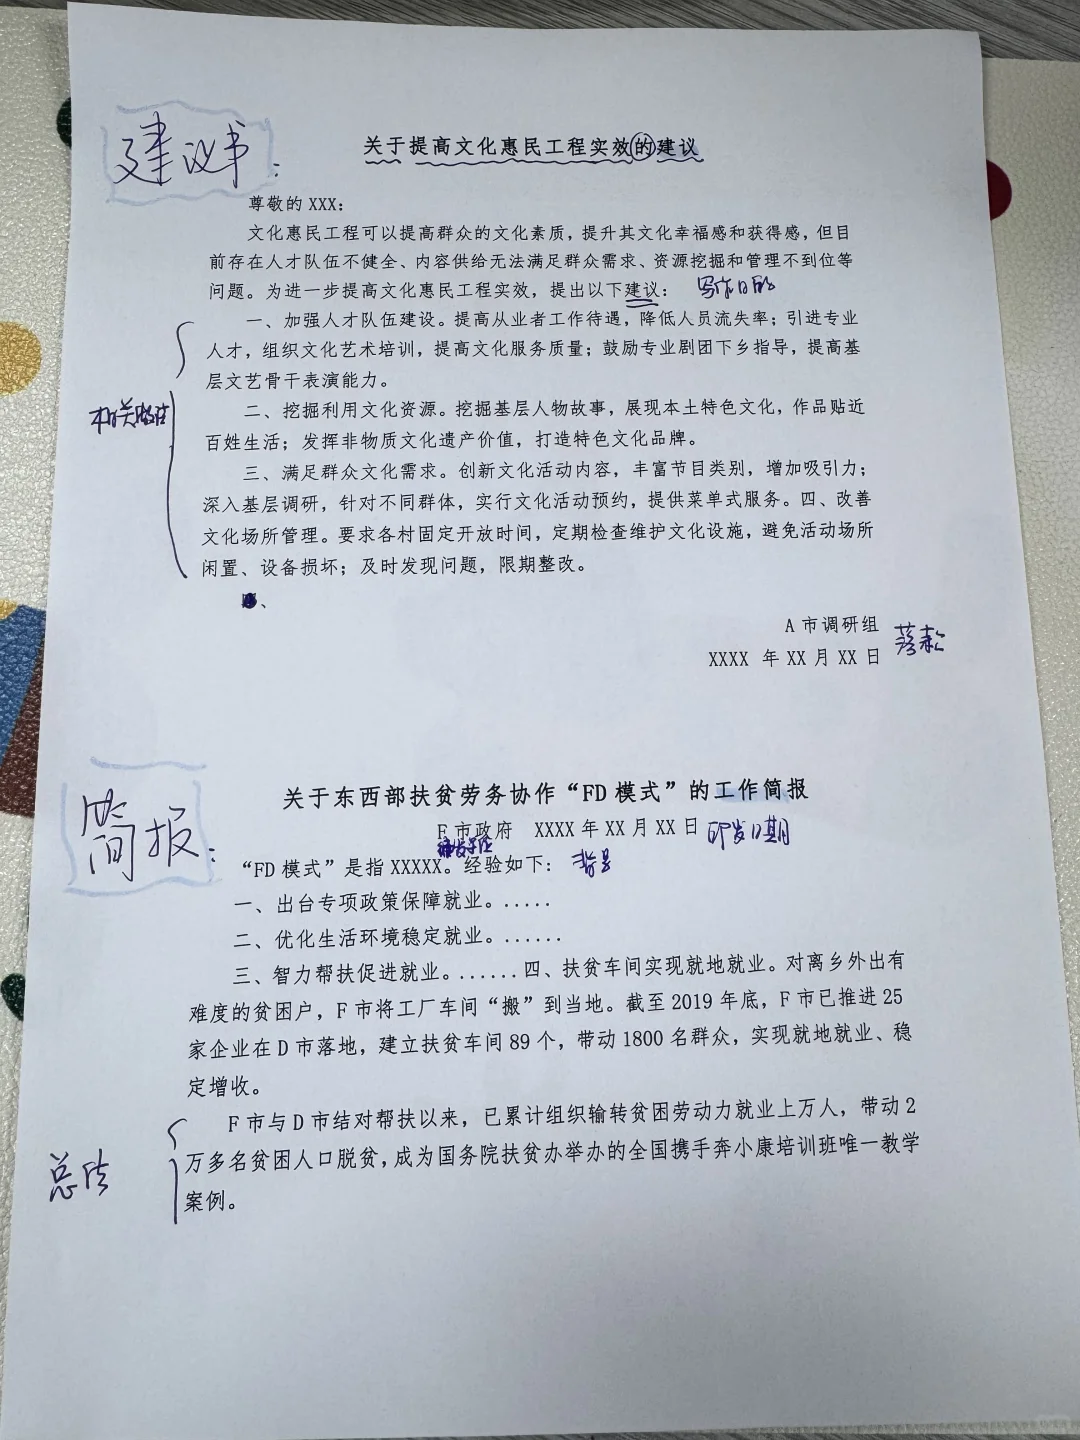 建议书:
关于提高文化惠民工程实效的建议
尊敬的 XXX:
文化惠民工程可以提高群众的文化素质，提升其文化幸福感和获得感，但目
前存在人才队伍不健全、内容供给无法满足群众需求、资源挖掘和管理不到位等
问题。为进一步提高文化惠民工程实效，提出以下建议: 写作目的
一、加强人才队伍建设。提高从业者工作待遇，降低人员流失率；引进专业
人才，组织文化艺术培训，提高文化服务质量；鼓励专业剧团下乡指导，提高基
层文艺骨干表演能力。
相关做法
二、挖掘利用文化资源。挖掘基层人物故事，展现本土特色文化，作品贴近
百姓生活；发挥非物质文化遗产价值，打造特色文化品牌。
三、满足群众文化需求。创新文化活动内容，丰富节目类别，增加吸引力；
深入基层调研，针对不同群体，实行文化活动预约，提供菜单式服务。四、改善
文化场所管理。要求各村固定开放时间，定期检查维护文化设施，避免活动场所
闲置、设备损坏；及时发现问题，限期整改。
、
A 市调研组
XXXX 年 XX 月 XX 日 落款
简报:
关于东西部扶贫劳务协作“FD 模式”的工作简报
F 市政府 XXXX 年 XX 月 XX 日 印发日期
“FD 模式”是指 XXXXX。经验如下: 背景
一、出台专项政策保障就业。.....
二、优化生活环境稳定就业。......
三、智力帮扶促进就业。......四、扶贫车间实现就地就业。对离乡外出有
难度的贫困户，F 市将工厂车间“搬”到当地。截至 2019 年底，F 市已推进 25
家企业在 D 市落地，建立扶贫车间 89 个，带动 1800 名群众，实现就地就业、稳
定增收。
F 市与 D 市结对帮扶以来，已累计组织输转贫困劳动力就业上万人，带动 2
万多名贫困人口脱贫，成为国务院扶贫办举办的全国携手奔小康培训班唯一教学
案例。
总结